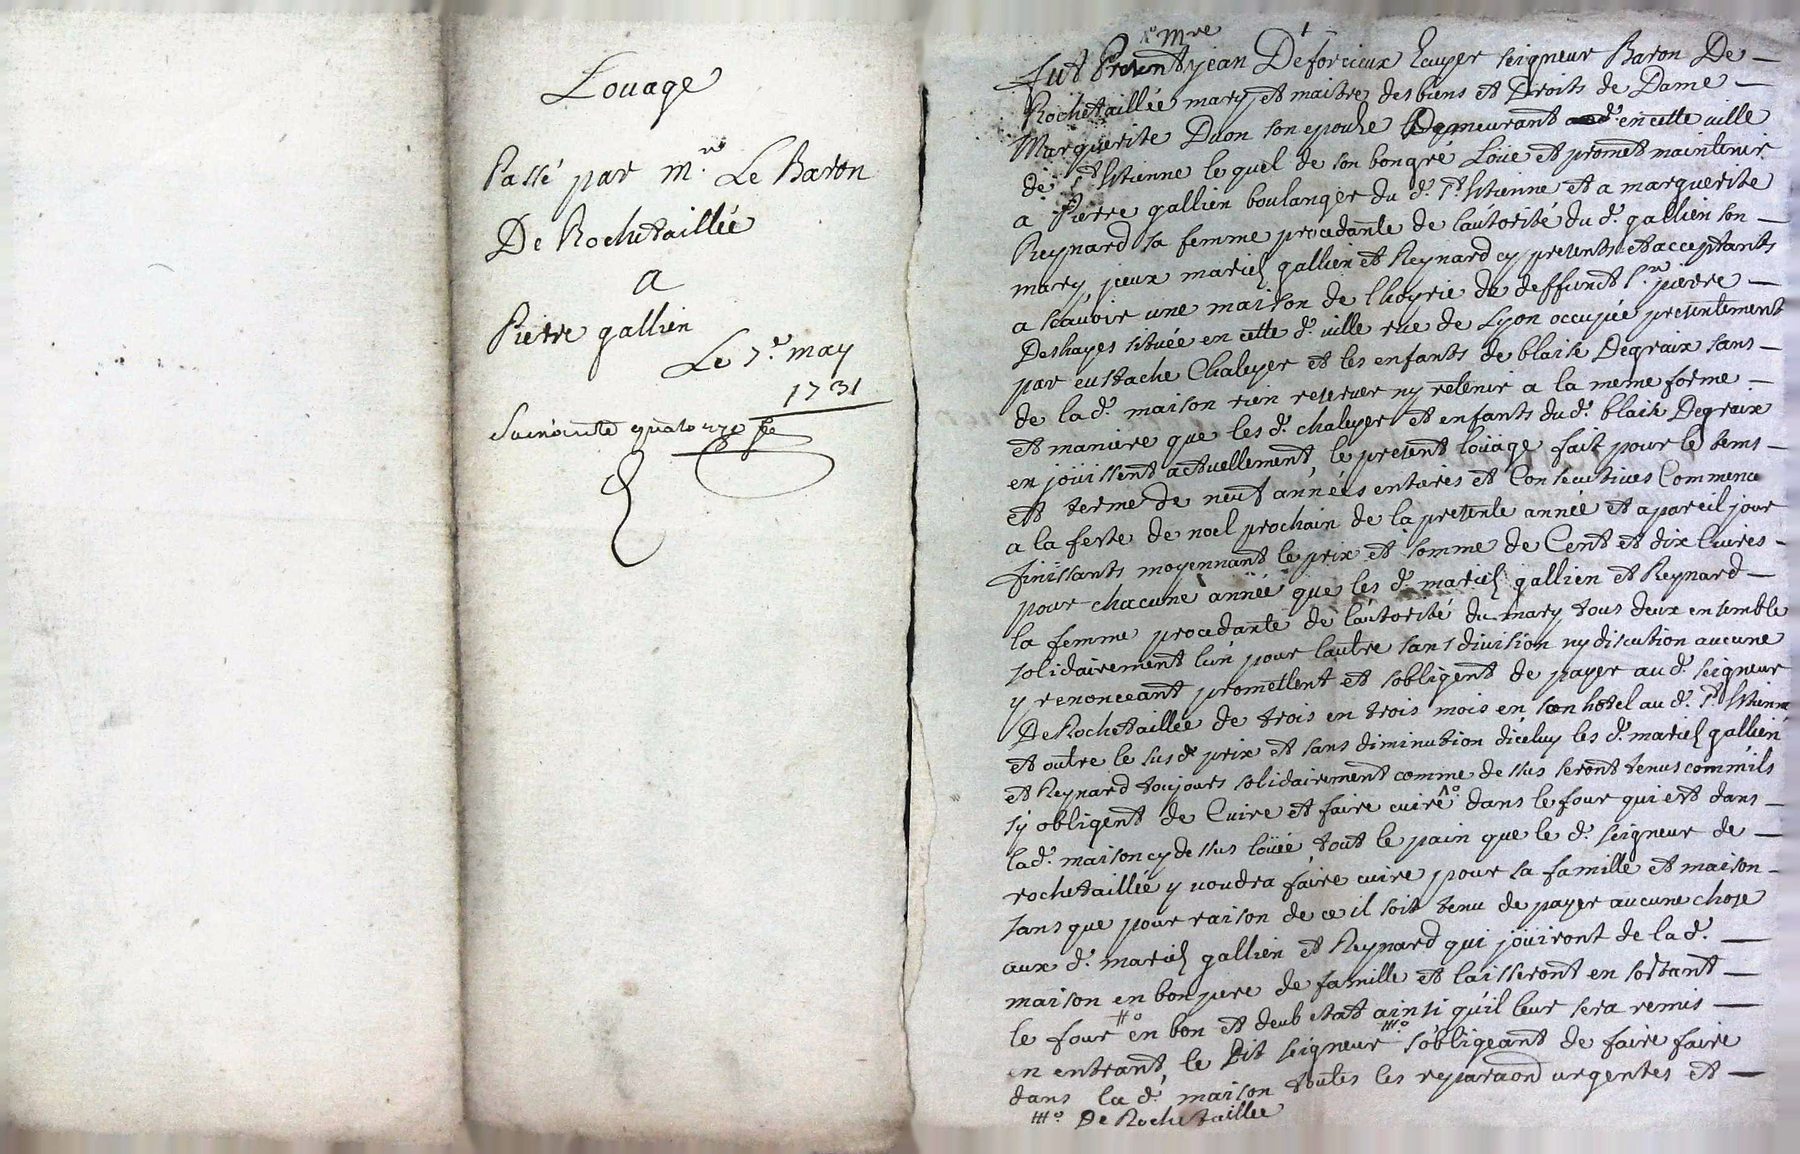 Louage
Passé par mr. Le Baron
De Rochetaillée
a
Pierre gallien
Le 7e may
1731
Soixante quatorze
mre
fut Present jean Deforcieux Ecuyer seigneur Baron De
Rochetaillée mary et maitre des biens et Droits de Dame
Marguerite Duon son epouse Demeurant en cette ville
de st Etienne lequel de son bon gré Loue et promet maintenir
a Pierre gallien boulanger du d. st Etienne et a marguerite
Reynard sa femme procedante de l'autorité du d. gallien son
mary, iceux mariés gallien et Reynard cy presents et acceptants
a scavoir une maison de lhoyrie de deffunct sr. pierre
Deshayes située en cette d. ville rue de Lyon occupée presentement
par eustache Chaleyer et les enfants de blaise Degraix sans
de la d. maison rien reserver ny retenir a la meme forme
et maniere que les d. chaleyer et enfants du d. blaise Degraix
en joüissent actuellement, le present loüage fait pour le tems
et terme de neuf années entieres et Consecutives Commence
a la feste de noel prochain de la presente année et a pareil jour
finissants moyennant le prix et somme de Cent et dix Livres
pour chacune année que les d. mariés gallien et Reynard
la femme procedante de l'autorité du mary tous deux ensemble
solidairement lun pour lautre sans division ny discution aucune
y renonceant promettent et sobligent de payer au d. seigneur
De Rochetaillée de trois en trois mois en son hotel au d. st Etienne
et outre le susd prix et sans diminution diceluy les d. mariés gallien
et Reynard toujours solidairement comme dessus seront tenus comm'ils
s'y obligent de Cuire et faire cuire dans le four qui est dans
la d. maison cy dessus loüée tout le pain que le d. seigneur de
rochetaillée y voudra faire cuire pour sa famille et maison
sans que pour raison de ce il soit tenu de payer aucune chose
aux d. mariés gallien et Reynard qui joüiront de la d.
maison en bon pere de famille et laisseront en sortant
le four en bon et deub etat ainsi qu'il leur sera remis
en entrant, le Dit seigneur s'obligeant de faire faire
dans la d. maison toutes les reparaon urgentes et
De Rochetaillée